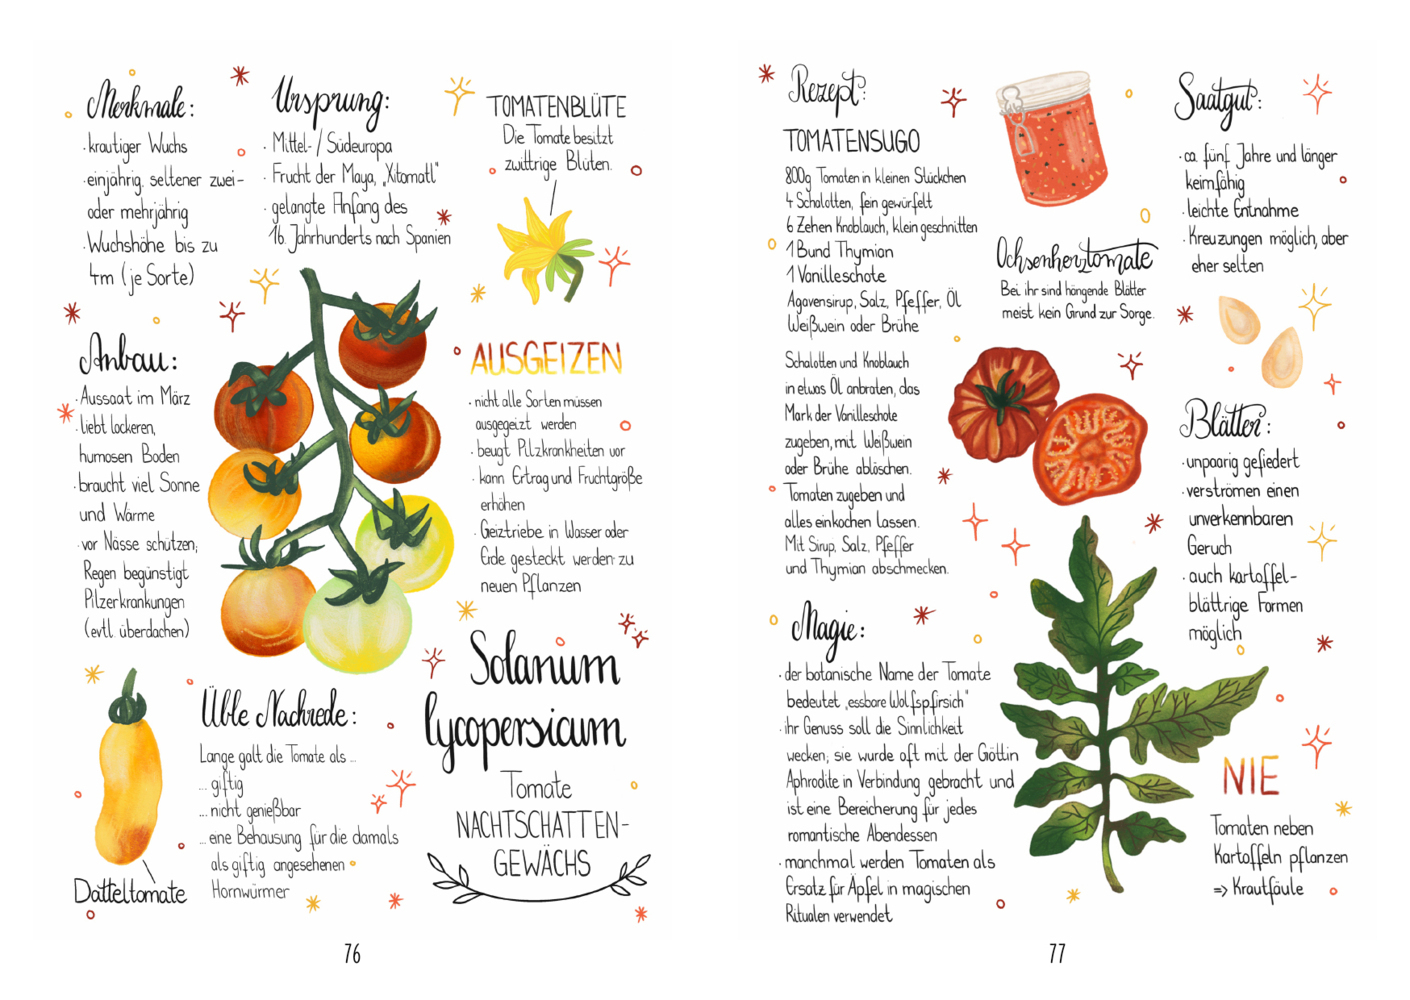 Merkmale:
· krautiger Wuchs
· einjährig, seltener zwei-
oder mehrjährig
· Wuchshöhe bis zu
4m (je Sorte)
Ursprung:
· Mittel-/Südeuropa
· Frucht der Maya, „Xitomatl“
· gelangte Anfang des
16. Jahrhunderts nach Spanien
TOMATENBLÜTE
Die Tomate besitzt
zwittrige Blüten.
Anbau:
· Aussaat im März
· liebt lockeren,
humosen Boden
· braucht viel Sonne
und Wärme
· vor Nässe schützen;
Regen begünstigt
Pilzerkrankungen
(evtl. überdachen)
AUSGEIZEN
· nicht alle Sorten müssen
ausgegeizt werden
· beugt Pilzkrankheiten vor
· kann Ertrag und Fruchtgröße
erhöhen
· Geiztriebe in Wasser oder
Erde gesteckt werden zu
neuen Pflanzen
Datteltomate
Üble Nachrede:
Lange galt die Tomate als ...
... giftig
... nicht genießbar
... eine Behausung für die damals
als giftig angesehenen
Hornwürmer
Solanum
lycopersicum
Tomate
NACHTSCHATTEN-
GEWÄCHS
76
Rezept:
TOMATENSUGO
800g Tomaten in kleinen Stückchen
4 Schalotten, fein gewürfelt
6 Zehen Knoblauch, klein geschnitten
1 Bund Thymian
1 Vanilleschote
Agavensirup, Salz, Pfeffer, Öl
Weißwein oder Brühe
Schalotten und Knoblauch
in etwas Öl anbraten, das
Mark der Vanilleschote
zugeben, mit Weißwein
oder Brühe ablöschen.
Tomaten zugeben und
alles einkochen lassen.
Mit Sirup, Salz, Pfeffer
und Thymian abschmecken.
Ochsenherztomate
Bei ihr sind hängende Blätter
meist kein Grund zur Sorge.
Saatgut:
· ca. fünf Jahre und länger
keimfähig
· leichte Entnahme
· Kreuzungen möglich, aber
eher selten
Blätter:
· unpaarig gefiedert
· verströmen einen
unverkennbaren
Geruch
· auch kartoffel-
blättrige Formen
möglich
Magie:
· der botanische Name der Tomate
bedeutet „essbare Wolfspfirsich“
· ihr Genuss soll die Sinnlichkeit
wecken; sie wurde oft mit der Göttin
Aphrodite in Verbindung gebracht und
ist eine Bereicherung für jedes
romantische Abendessen
· manchmal werden Tomaten als
Ersatz für Äpfel in magischen
Ritualen verwendet
NIE
Tomaten neben
Kartoffeln pflanzen
=> Krautfäule
77